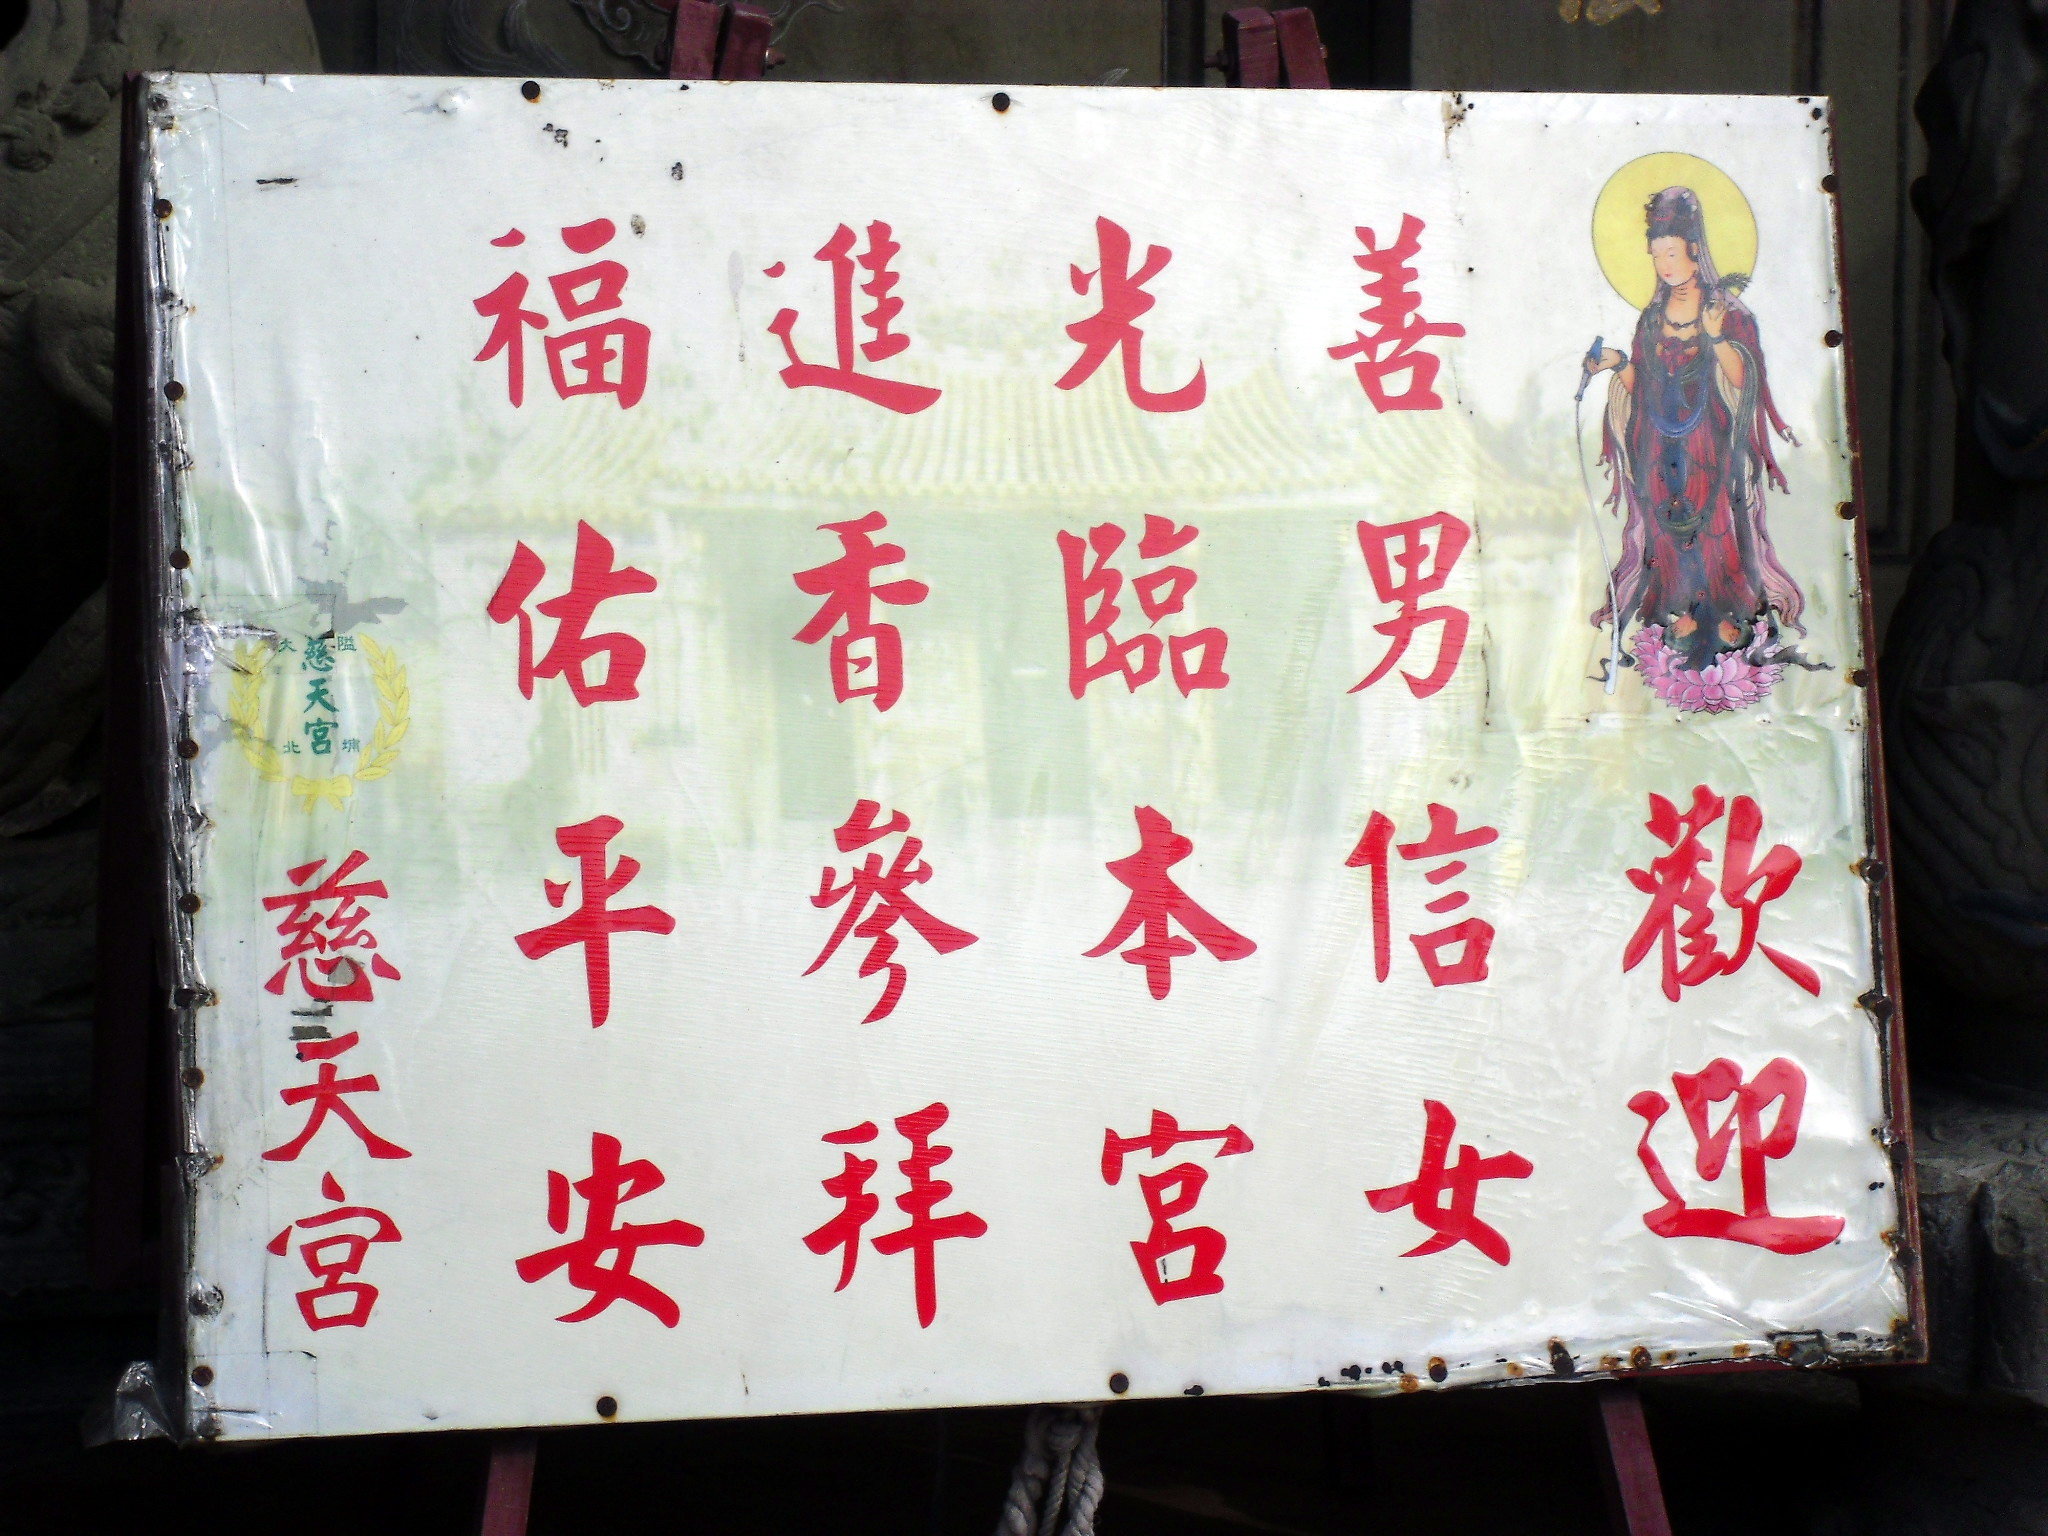 歡迎
善男信女
光臨本宮
進香參拜
福佑平安
大隘
慈天宮
北埔
慈天宮